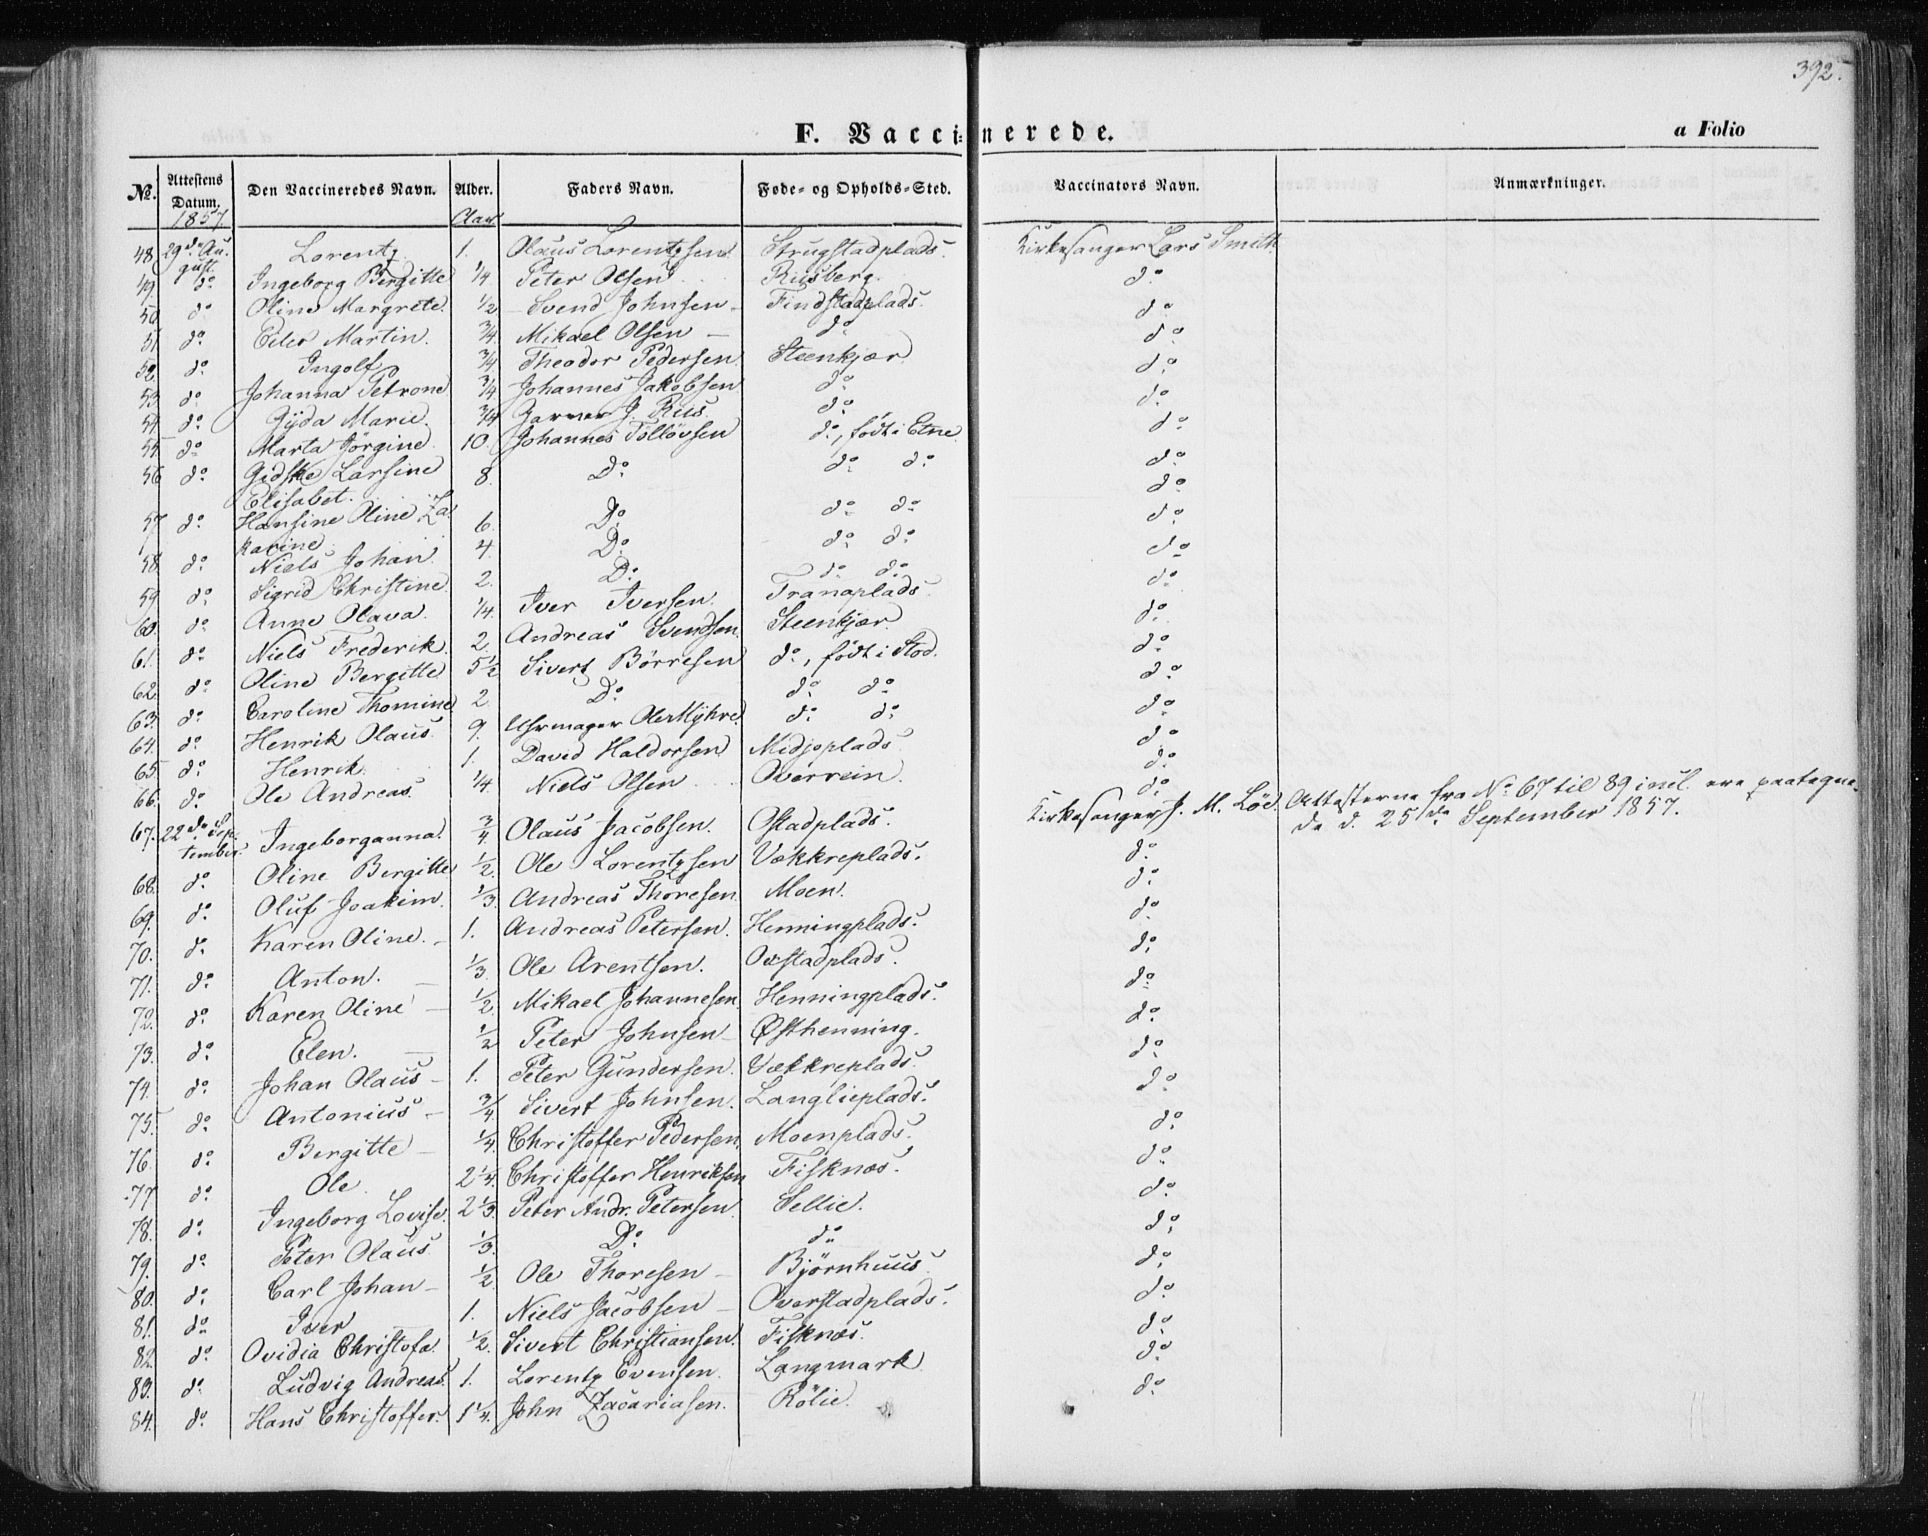 392.
F. Vaccinerede.
a Folio
No. Attestens Datum. Den Vaccineredes Navn. Alder. Faders Navn. Føde- og Opholds-Sted. Vaccinators Navn. Anmærkninger.
1857 Aar
48. 29de August. Lorentz 1. Olaus Lorentzsen. Strugstadplads. Kirkesanger Lars Smith
49. do Ingeborg Bergitte 1/4 Peter Olsen Riisberg. do
50 do Oline Margrete. 1/2 Svend Johnsen Findstadplads. do
51 do Eiler Martin. 3/4 Mikael Olsen do do
52. do Ingolf 3/4 Theodor Pedersen Steenkjær do
53 do Johanna Petrone 3/4 Johannes Jakobsen do do
54 do Gÿda Marie. 3/4 Garver J. Riis. do do
55 do Marta Jörgine 10. Johannes Tollövsen do, født i Etne do
56 do Gidske Larsine Elisabet. 8. Do do do do
57 do Hansine Oline Zakarine 6. Do do do do
58 do Niels Johan 4. Do do do do
59 do Sigrid Christine 2. Do do do do
60. do Anne Olava. 1/4. Iver Iversen. Tranaplads do
61. do Niels Frederik. 2. Andreas Svendsen. Steenkjær. do
62. do Oline Bergitte 5 1/2 Sivert Börresen do, født i Stod. do
63. do Caroline Thomine 2. Do do do do
64. do Henrik Olaus. 9. Uhrmager Ole Myhre do do do
65. do Henrik. 1. David Haldorsen Midjoplads do
66. do Ole Andreas. 1/4. Niels Olsen Overrein. do
67. 22de September. Ingeborganna. 3/4 Olaus Jacobsen. Ostadplads. Kirkesanger J. M. Löe. Attesterne fra No 67 til 89 incl. ere paategnede d. 25de September 1857.
68. do Oline Bergitte 1/2. Ole Lorentzsen Vækkreplads. do
69. do Oluf Joakim. 1/3. Andreas Thoresen Moen. do
70. do Karen Oline. 1. Andreas Petersen. Henningplads. do
71. do Anton. 1/3. Ole Arentsen. Oxstadplads. do
72. do Karen Oline 1/2 Mikael Johannesen Henningplads. do
73. do Elen. 1/2 Peter Johnsen Østhenning. do
74. do Johan Olaus 1. Peter Gundersen. Vækkreplads. do
75. do Antonius 3/4 Sivert Johnsen. Langlieplads. do
76. do Bergitte 1/4. Christoffer Pedersen. Moenplads. do
77 do Ole. 2 1/4. Christoffer Henriksen Fisknæs. do
78. do Ingeborg Lovise. 2 1/3. Peter Andr. Petersen. Sellie. do
79. do Peter Olaus 1/3. Do do do
80. do Carl Johan 1/2. Ole Thoresen Bjørnhuus do
81. do Iver 1. Niels Jacobsen Overstadplads. do
82. do Ovidia Christofa. 1/2. Sivert Christiansen. Fisknæs. do
83. do Ludvig Andreas. 1. Lorentz Evensen. Langmark do
84. do Hans Christoffer. 1 1/4. John Zacariasen. Rölie. do